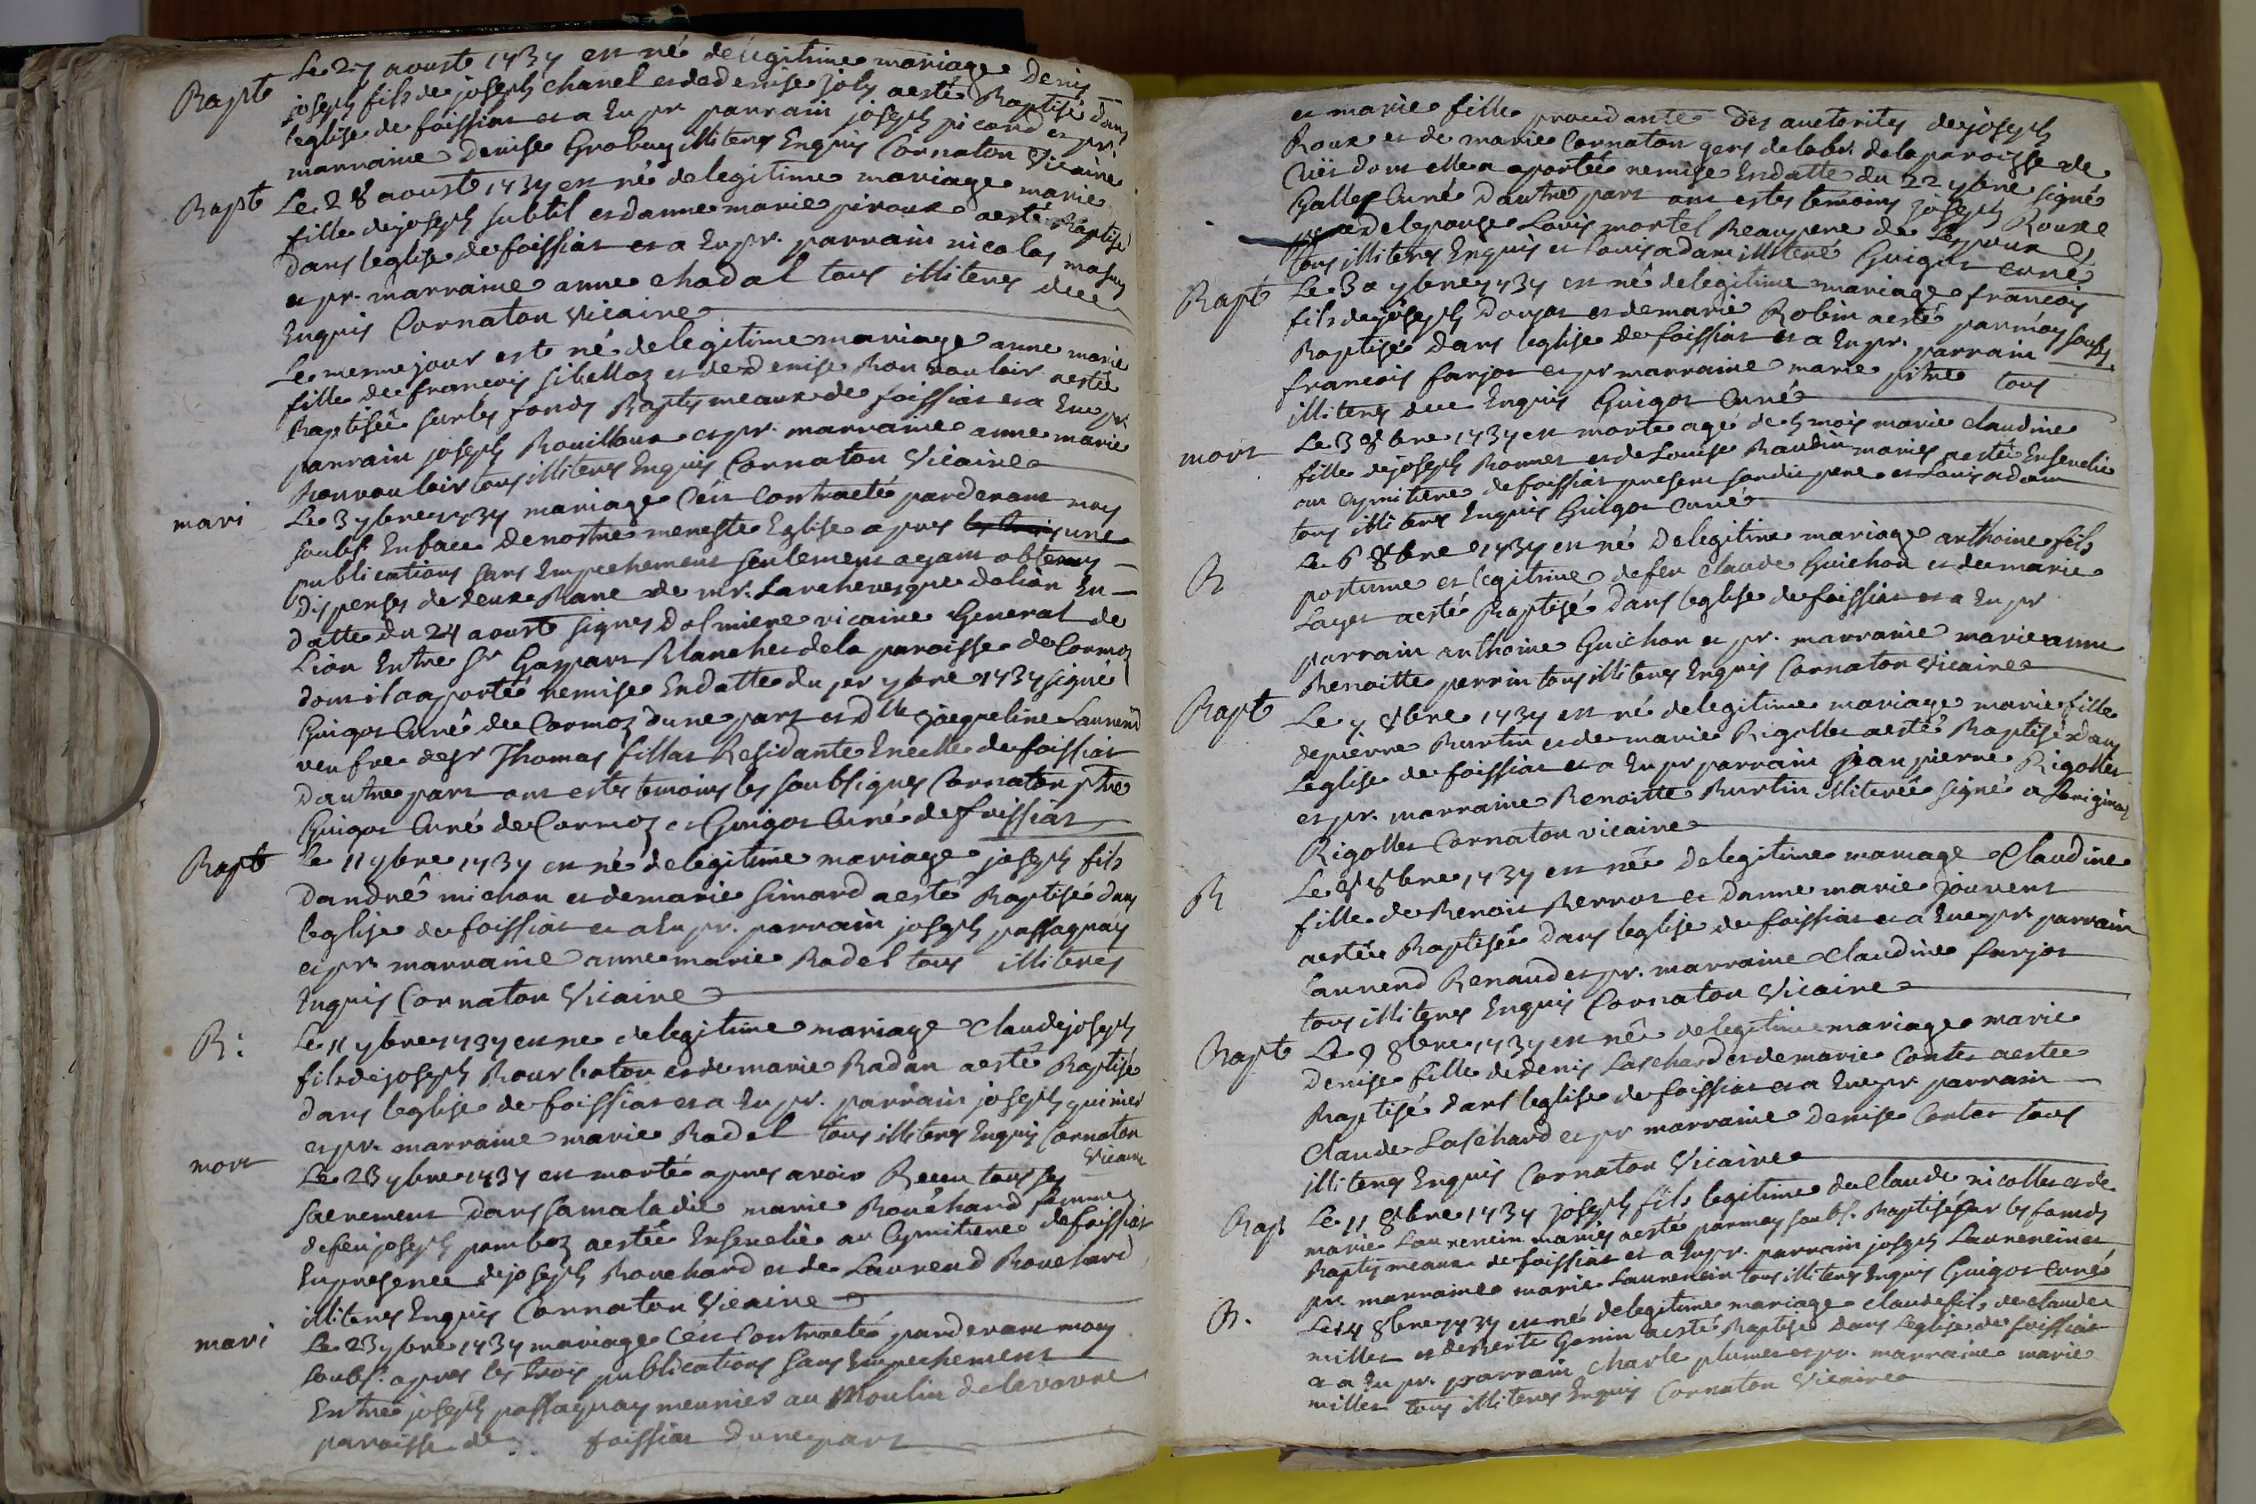 Bapt Le 27 aoust 1737 est né de legitime mariage denis
joseph fils de joseph chanel et de denise joly aesté Baptisé dans
leglise de foissiat et a Eu pr parrain joseph picard et pr.
marraine denise Grobuy illiteres Enquis Cornaton Vicaire
Bapt Le 28 aoust 1737 est né de legitime mariage marie
fille de joseph subtil et danne marie piroux aesté Baptisé
dans leglise de foissiat et a Eu pr. parrain nicolas
et pr. marraine anne chadal tous illiteres deee
Enquis Cornaton Vicaire
Le mesme jour este né de legitime mariage anne marie
fille de francois sibelloz et de denise Bonvouloir aesté
Baptiséé sur les fonds Baptismeaux de foissiat et a Eu pr
parrain joseph Bouilloux et pr. marraine anne marie
Bonvouloir tous illiteres Enquis Cornaton Vicaire
mari Le 3 7bre 1737 mariage C'est Contracté pardevant moy
soubs. En face de nostre mere ste Eglise apres une
publications sans Empechement seulement ayant obtenus
dispenses de deux Bane de mr. Larchevesque de lion En
datte du 24 aoust signes dolmiere vicaire General de
Lion Entre sr Gaspart Blanchet de la paroisse de Cormoz
dont il a aporteé Remise En datte du per 7bre 1737 signé
Guigot Curé de Cormoz dune part et dlle jacqueline Laurend
veufve de sr Thomas fillat Residante Enville de foissiat
dautre part ont estes temoins les soubsignes Cornaton ptre
Guigot Curé de Cormoz et Guigot Curé de foissiat
Bapt Le 11 7bre 1737 est né de legitime mariage joseph fils
dandré michon et de marie simard aesté Baptisé dans
leglise de foissiat et a Eu pr. parrain joseph passaquay
et pr. marraine anne marie Badel tous illiteres
Enquis Cornaton Vicaire
B: Le 11 7bre 1737 est ne de legitime mariage Claude joseph
fils de joseph Bourbaton et de marie Badan aesté Baptisé
dans leglise de foissiat et a Eu pr. parrain joseph guimet
et pr. marraine marie Badel tous illiteres Enquis Cornaton
Vicaire
mort Le 23 7bre 1737 est morte apres avoir Receu tous ses
sacrement dans sa maladie marie Bouchard femme
de feu joseph pomboz aesté Ensevelie au Cymitiere de foissiat
En presence de joseph Bouchard et de Laurend Bouchard
illiteres Enquis Cornaton Vicaire
mari Le 23 7bre 1737 mariage C'est Contracté pardevant moy
soubs. apres les trois publications sans Empechement
Entre joseph passaquay meunier au Moulin de levavre
paroisse de foissiat dune part
et marie fille procedante des auctorites de joseph
Roux et de marie Cornaton gens de labr. de la paroisse de
Viri dont elle a aportée remise En datte du 22 7bre signé
Gallet Curé dautre part ont estes temoins joseph Roux
pere de lepouse Louis mortel Beaupere de Lepoux
tous illiteres Enquis et Louis adam illiteré Guigot curé
Bapt Le 30 7bre 1737 est né de legitime mariage francois
fils de joseph donjat et de marie Robin aesté par moy soubs.
Baptisé dans leglise de foissiat et a Eu pr. parrain
francois farjot et pr marraine marie pitre tous
illiteres deee Enquis Guigot Curé
mort Le 3 8bre 1737 est morte agé de 5 mois marie claudine
fille de joseph Bonnet et de Louise Baudin maries aestéé Ensevelie
au Cymitiere de foissiat present sondit pere et Louis adam
tous illiteres Enquis Guigot Curé
B Le 6 8bre 1737 est né de legitime mariage anthoine fils
postume et legitime de feu claude Guichon et de marie
Layet aesté Baptisé dans leglise de foissiat et a Eu pr
parrain anthoine Guichon et pr. marraine marie anne
Benoitte perrin tous illiteres Enquis Cornaton Vicaire
Bapt Le 7 8bre 1737 est né de legitime mariage marie fille
de pierre Burtin et de marie Rigollet aesté Baptisé dans
Leglise de foissiat et a Eu pr parrain jean pierre Rigollet
et pr. marraine Benoitte Burtin illiterée signé a Loriginal
Rigollet Cornaton vicaire
B Le 8 8bre 1737 est née de legitime mariage Claudine
fille de Benoit Berrot et danne marie jouvent
aestée Baptiséé dans leglise de foissiat et a Eue pr. parrain
Laurend Renaud et pr. marraine Claudine farjot
tous illiteres Enquis Cornaton Vicaire
Bapt Le 9 8bre 1737 est née de legitime mariage marie
denise fille de denis Laschard et de marie Contet aestee
Baptisé dans leglise de foissiat et a Eue pr. parrain
Claude Laschard et pr marraine denise Contet tous
illiteres Enquis Cornaton Vicaire
Bap Le 11 8bre 1737 joseph fils legitime de Claude nicollet et de
marie Laurencin maries aesté par moy soubs. Baptisé sur les fonds
Baptismeaux de foissiat et a Eu pr. parrain joseph Laurencin et
pr. marraine marie Laurencin tous illiteres Enquis Guigot Curé
B. Le 14 8bre 1737 est né de legitime mariage claude fils de claude
millet et de Berte Gonin aesté Baptisé dans Leglise de foissiat
et a Eu pr. parrain Charle plumet et pr. marraine marie
millet tous illiteres Enquis Cornaton Vicaire